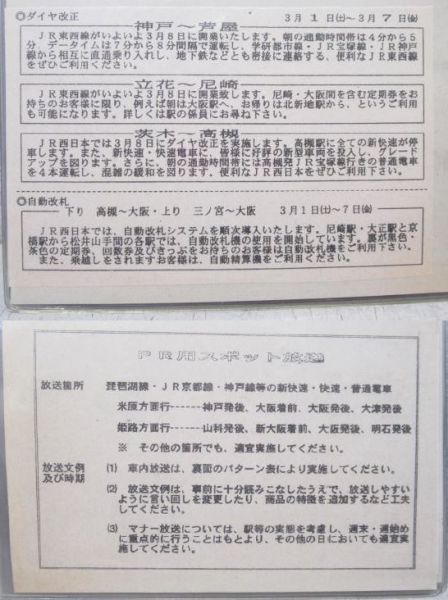 ◎ダイヤ改正　3月1日(土)～3月7日(金)
神戸～芦屋
ＪＲ東西線がいよいよ3月8日に開業いたします。朝の通勤時間帯は4分から5
分、データイムは7分から8分間隔で運転し、学研都市線・ＪＲ宝塚線・ＪＲ神戸
線から相互に直通乗り入れし、地下鉄などとも密接に連絡する、便利なＪＲ東西線
をぜひご利用ください。
立花～尼崎
ＪＲ東西線がいよいよ3月8日に開業致します。尼崎・大阪間を含む定期券をお
持ちのお客様に限り、例えば朝は大阪駅へ、お帰りは北新地駅から、というご利用
も可能になります。詳しくは駅の係員にお尋ね下さい。
茨木～高槻
ＪＲ西日本では3月8日にダイヤ改正を実施します。高槻駅に全ての新快速が停
車します。また、新快速・快速電車に、皆様に好評の新型車両を投入し、グレード
アップを図ります。さらに、朝の通勤時間帯には高槻発ＪＲ宝塚線行きの普通電車
を4本運転し、混雑の緩和を図ります。便利なＪＲ西日本をぜひご利用下さい。
◎自動改札
下り　高槻～大阪・上り　三ノ宮～大阪　3月1日(土)～7日(金)
ＪＲ西日本では、自動改札システムを順次導入いたします。尼崎駅・大正駅と京
橋駅から松井山手間の各駅では、自動改札機の使用を開始しています。裏が黒色・
茶色の定期券、回数券及びきっぷをお持ちのお客様は自動改札機をご利用下さい。
また、乗越しをされますお客様は、自動精算機をご利用ください。
ＰＲ用スポット放送
放送箇所　琵琶湖線・ＪＲ京都線・神戸線等の新快速・快速・普通電車
米原方面行------神戸発後、大阪着前、大阪発後、大津発後
姫路方面行------山科発後、新大阪着前、大阪発後、明石発後
※　その他の箇所でも、適宜実施してください。
放送文例　(1)　車内放送は、裏面のパターン表により実施してください。
及び時期
(2)　放送文例は、事前に十分読みこなしたうえで、放送しやすい
ように言い回しを変更したり、商品の特徴を追加するなど工夫
してください。
(3)　マナー放送については、駅等の実態を考慮し、週末・週始め
に重点的に行うことはもとより、その他の日においても適宜実
施してください。